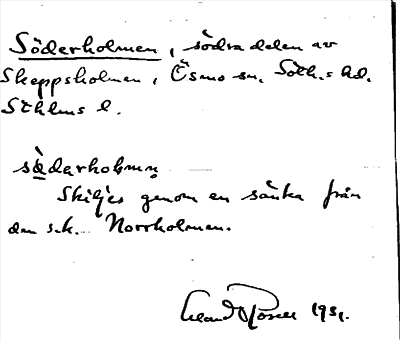 Söderholmen, södra delen av
Skeppsholmen, Ösmo sn. Soth.s hd.
Sthlms l.
sö̀derholmn̥
Skiljes genom en sänka från
den s.k. Norrholmen.
Rosell 1931.